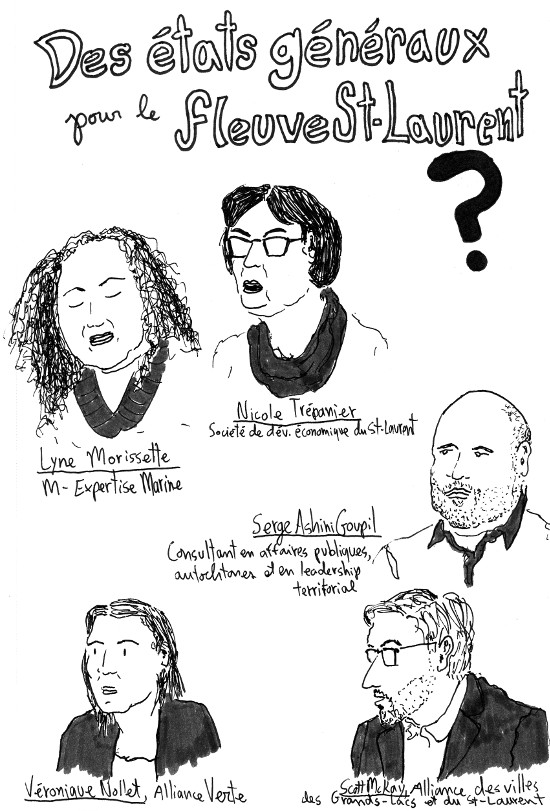 Des états généraux
pour le fleuve St-Laurent
?
Nicole Trépanier
Société de dév. économique du St-Laurent
Lyne Morissette
M-Expertise Marine
Serge Ashini Goupil
Consultant en affaires publiques,
autochtones et en leadership
territorial
Véronique Nollet, Alliance Verte
Scott McKay, Alliance des villes
des Grands-Lacs et du St-Laurent